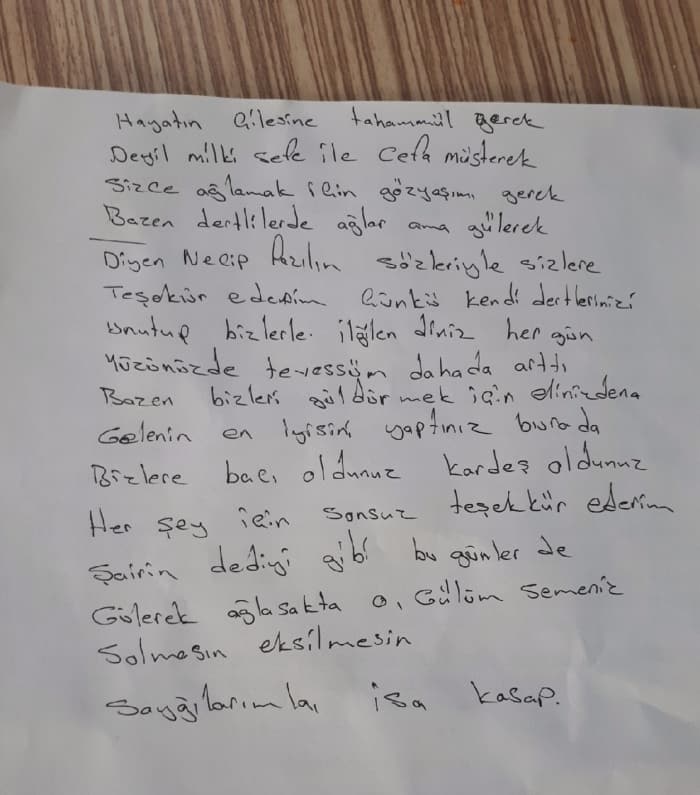 Hayatın Çilesine tahammül gerek
Deyil milki sefe ile Cefa müşterek
Sizce ağlamak için gözyaşımı gerek
Bazen dertlilerde ağlar ama gülerek
Diyen Necip Fazılın sözleriyle sizlere
Teşekür ederim Çünkü kendi dertlerinizi
Unutup bizlerle ilğlen diniz her gün
Yüzünüzde tevessüm dahada arttı
Bazen bizleri güldür mek için elinizdena
Gelenin en iyisini yaptınız burada
Bizlere bacı oldunuz kardeş oldunuz
Her şey için sonsuz teşekkür ederim
Şairin dediyi gibi bu günler de
Gülerek ağlasakta o, Gülüm semeniz
Solmasın eksilmesin
Sayğılarımla, isa kasap.